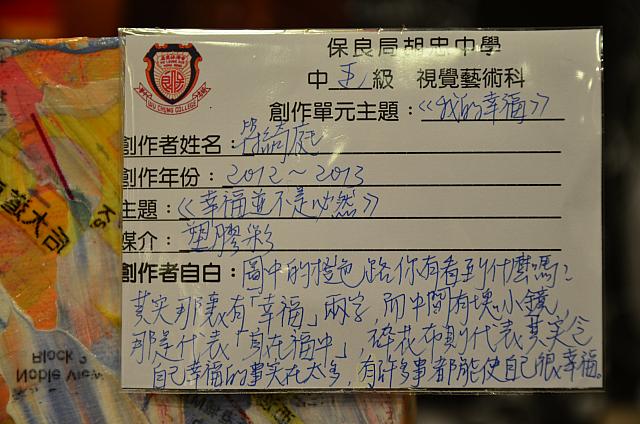 保良局胡忠中學
中 五 級 視覺藝術科
WU CHUNG COLLEGE
創作單元主題：《我的幸福》
創作者姓名：
創作年份：2012～2013
主題：《幸福並不是必然》
媒介：塑膠彩
創作者自白：圖中的橙色路你有看到什麼嗎？
其實那裏有「幸福」兩字，而中間有塊小鏡，
那是代表「身在福中」，碎花布則代表其實令
自己幸福的事實在太多，有許多事都能使自己很幸福。
Block 2
Noble View